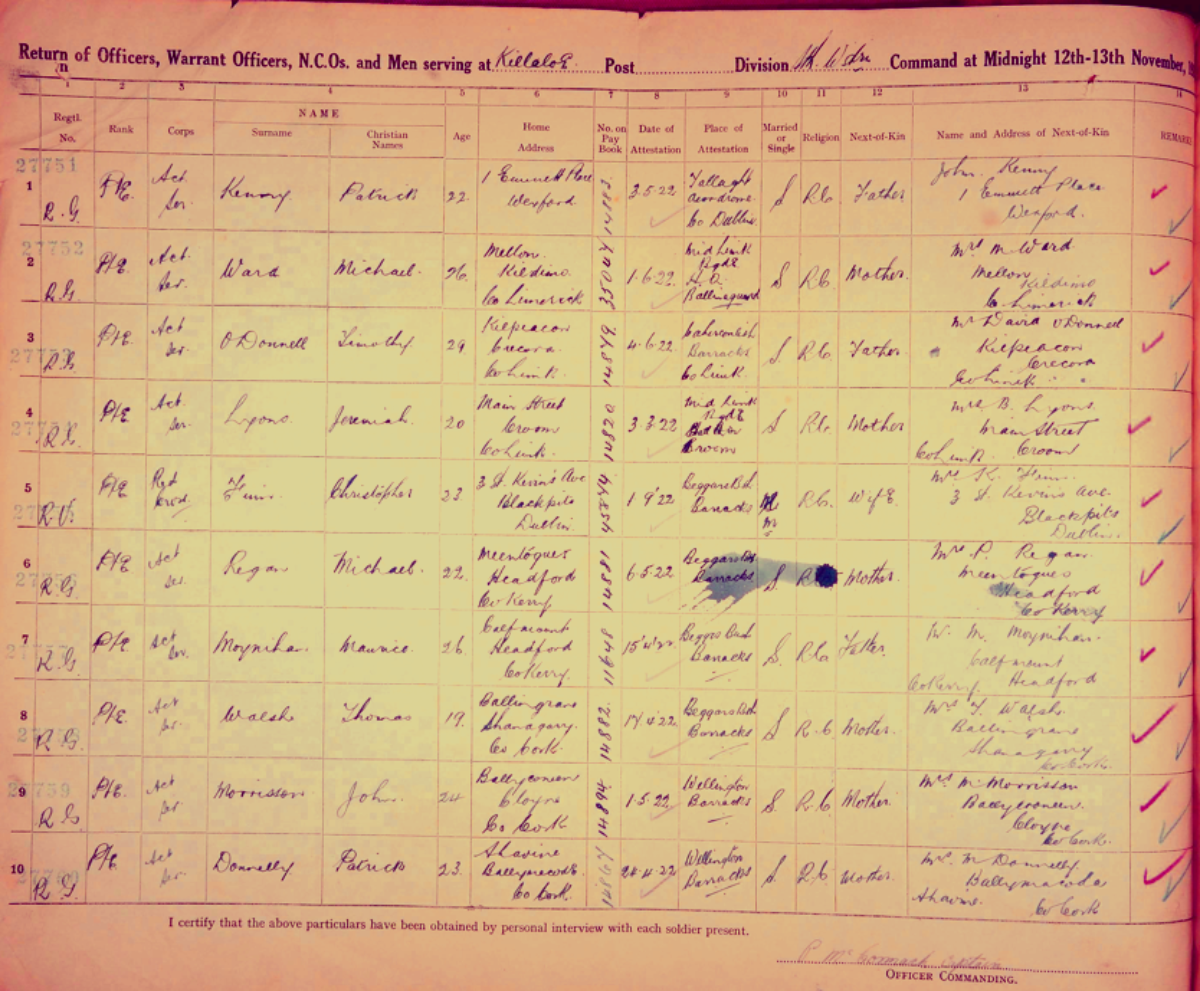 Return of Officers, Warrant Officers, N.C.Os. and Men serving at Killaloe Post Division Command at Midnight 12th-13th November,
1 2 3 4 5 6 7 8 9 10 11 12 13 14
Regtl. No. Rank Corps NAME Surname Christian Names Age Home Address No. on Pay Book Date of Attestation Place of Attestation Married or Single Religion Next-of-Kin Name and Address of Next-of-Kin REMARKS
27751
1 R.G Pte. Act Ser. Kenny Patrick 22 1 Emmett Place Wexford 3.5.22 Tallaght Aerodrome Co Dublin S R.C. Father John Kenny 1 Emmett Place Wexford.
27752
2 R.G Pte. Act. Ser. Ward Michael. 26 Mellon. Kildimo. Co Limerick 1.6.22. Mid Limk Bgde H.Q. S R.C. Mother. Mrs M Ward Mellon Kildimo Co Limerick
3 R.G. Pte. Act Ser. O'Donnell Timothy 29 Kilpeacon Crecora. Co Limk 4.6.22 Barracks Co Limk S R.C. Father Mr David O'Donnell Kilpeacon Crecora Co Limk
4 R.G. Pte Act. Ser. Lyons. Jeremiah. 20 Main Street Croom Co Limk. 3.3.22 Mid Limk Bgde Croom S R.C. Mother Mrs B. Lyons. Main Street Croom Co Limk
5 Pte Red Cross Christopher 23 3 St. Kevin's Ave Blackpits Dublin. 1 9 22 Beggars Bsh Barracks M R.C. Wife 3 St. Kevin's Ave. Blackpits Dublin.
6 R.G. Pte Act Ser. Regan Michael. 22. Meentogues Headford Co Kerry 6.5.22 Beggars Bsh Barracks S. Mother. Mrs P. Regan. Meentogues Headford Co Kerry
7 R.G Pte Act Ser. Moynihan Maurice. 26 Calfmount Headford Co Kerry. 15.4.22 Beggars Bush Barracks S. R.C. Father. Moynihan. Calfmount Headford Co Kerry.
8 R.G. Pte. Act Ser. Walsh Thomas 19. Ballingrane Shanagarry. Co Cork. 17.4.22 Beggars Bsh Barracks S R.C. Mother. Mrs Walsh. Ballingrane Shanagarry Co Cork.
27759
9 R.G Pte. Act Ser Morrisson John. 24 Ballycroneen Cloyne Co Cork 1.5.22 Wellington Barracks S. R.C Mother. Mrs M Morrisson Ballycroneen. Cloyne Co Cork.
10 R.G. Pte Act Ser. Donnelly Patrick 23. Ballymacoda Co Cork. 24.4.22 Wellington Barracks S R.C Mother. Mrs M Donnelly Ballymacoda Co Cork
I certify that the above particulars have been obtained by personal interview with each soldier present.
P McCormack Captain
OFFICER COMMANDING.